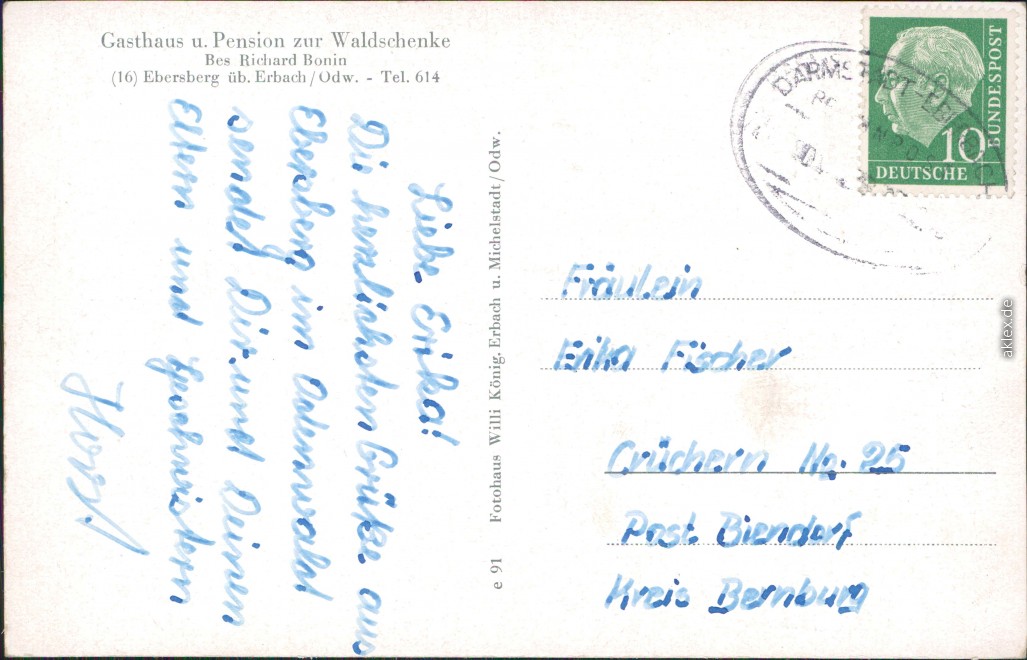 Gasthaus u. Pension zur Waldschenke
Bes Richard Bonin
(16) Ebersberg üb. Erbach/Odw. - Tel. 614
Liebe Erika!
Die herzlichsten Grüße aus
Ebersberg im Odenwald
sendet Dir und Deinen
Eltern und Geschwistern
Horst
e 91 Fotohaus Willi König, Erbach u. Michelstadt/Odw.
DARMSTADT
10
DEUTSCHE
BUNDESPOST
Fräulein
Erika Fischer
Crüchern No: 25
Post Biendorf
Kreis Bernburg
aklex.de